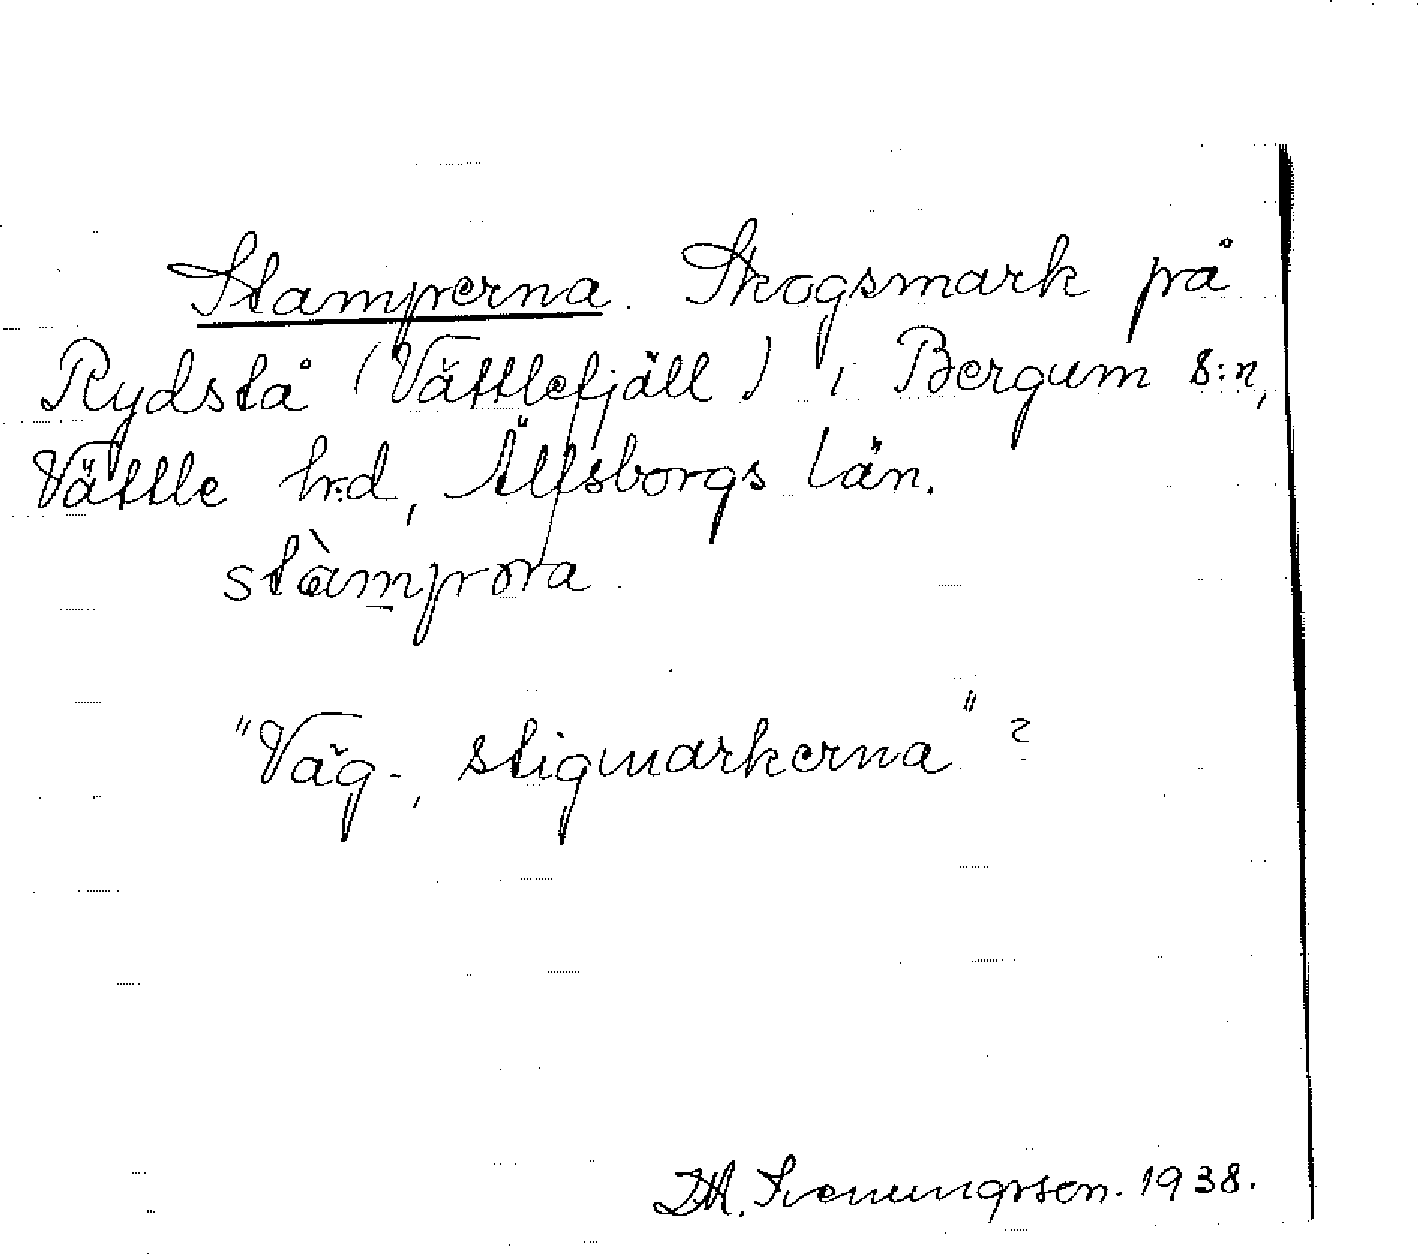 Stamperna. Skogsmark på
Rydstå (Vättlefjäll) i Bergum s:n,
Vättle h:d, Älfsborgs län.
stàmpora.
"Väg-, stigmarkerna"?
Svenungsson. 1938.